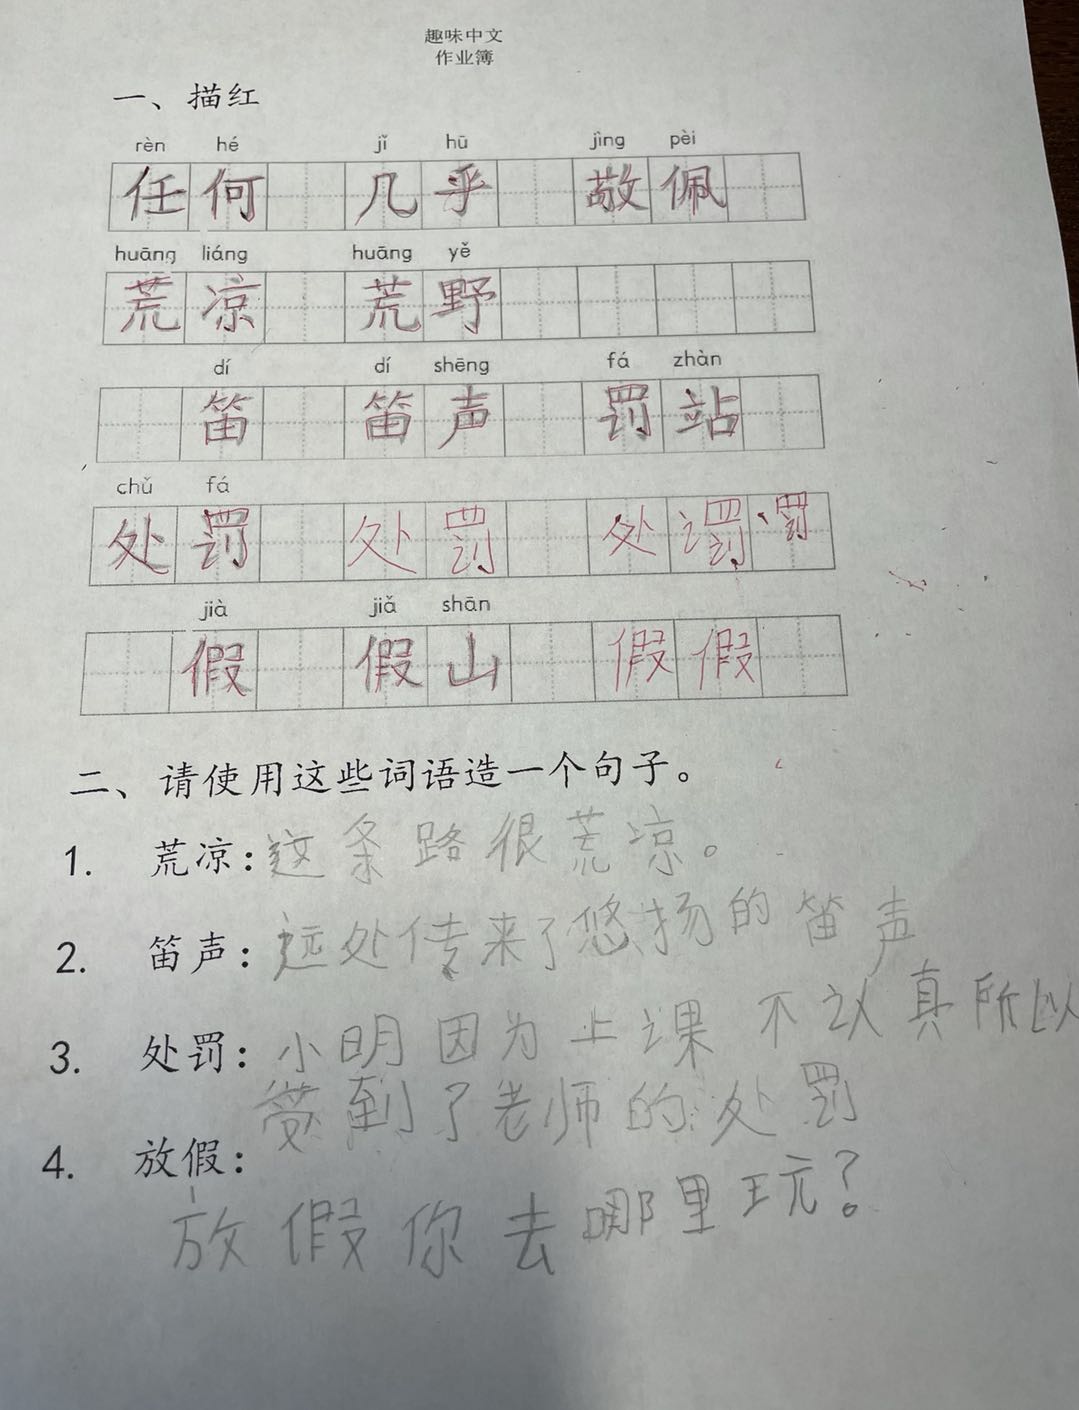 趣味中文
作业簿
一、描红
rèn hé jǐ hū jìng pèi
任何 几乎 敬佩
huāng liáng huāng yě
荒凉 荒野
dí dí shēng fá zhàn
笛 笛声 罚站
chǔ fá
处罚 处罚 处罚罚
jià jiǎ shān
假 假山 假假
二、请使用这些词语造一个句子。
1. 荒凉：这条路很荒凉。
2. 笛声：远处传来了悠扬的笛声
3. 处罚：小明因为上课不认真所以
受到了老师的处罚
4. 放假：
放假你去哪里玩？